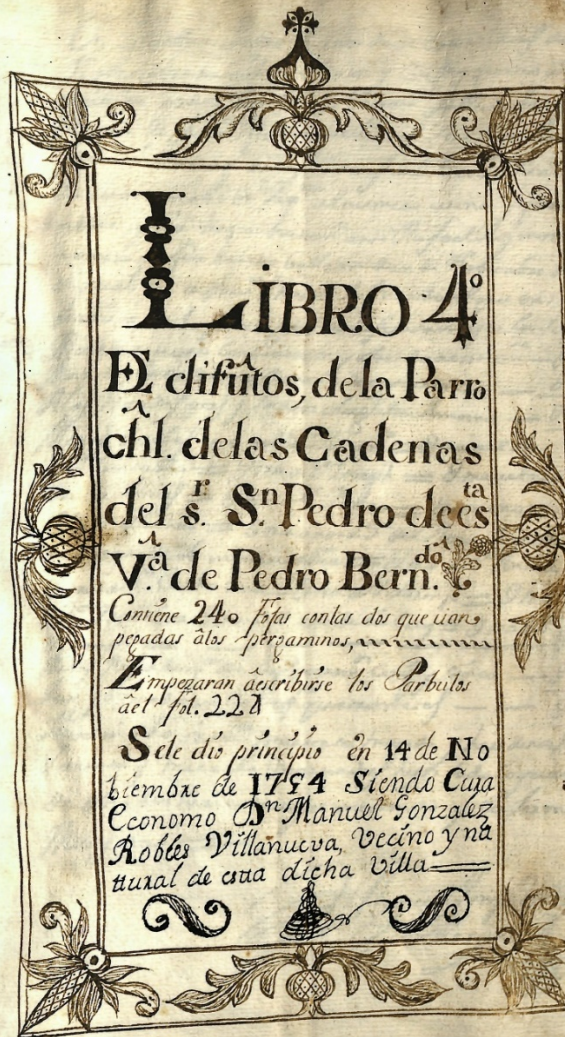 LIBRO 4º
DE difũtos, de la Parro
chl. delas Cadenas
del s.r S.n Pedro de es ta
V.a de Pedro Bern.do
Contiene 240 fojas con las dos que uan
pegadas âlos pergaminos,
Empezaran âescribirse los Parbulos
âel fol. 221
Sele dio principio en 14 de No
biembre de 1754 Siendo Cura
Economo Dn Manuel Gonzalez
Robles Villanueva, Vecino y na
tural de esta dicha Villa